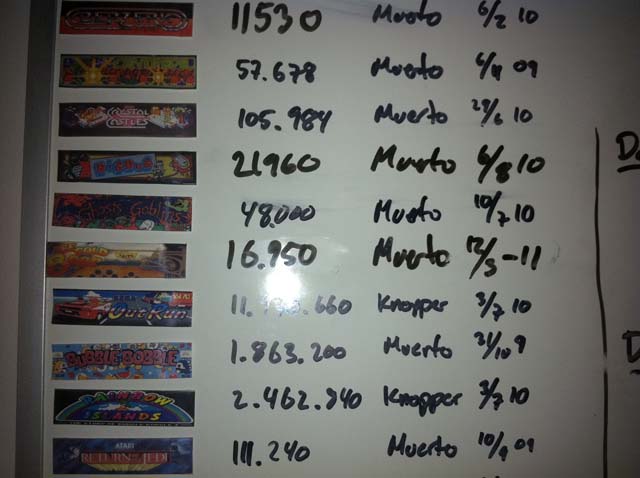 11530 Muerto 6/2 10
57.678 Muerto 6/9 09
CRYSTAL CASTLES 105.984 Muerto 29/6 10
21960 Muerto 6/8 10
Ghosts'n Goblins 48.000 Muerto 10/7 10
16.950 Muerto 12/5-11
SEGA OutRun 11. .660 Knopper 3/7 10
BUBBLE BOBBLE 1.863.200 Muerto 31/10 9
RAINBOW ISLANDS 2.462.840 Knopper 3/7 10
ATARI RETURN OF THE JEDI 111.240 Muerto 10/9 09